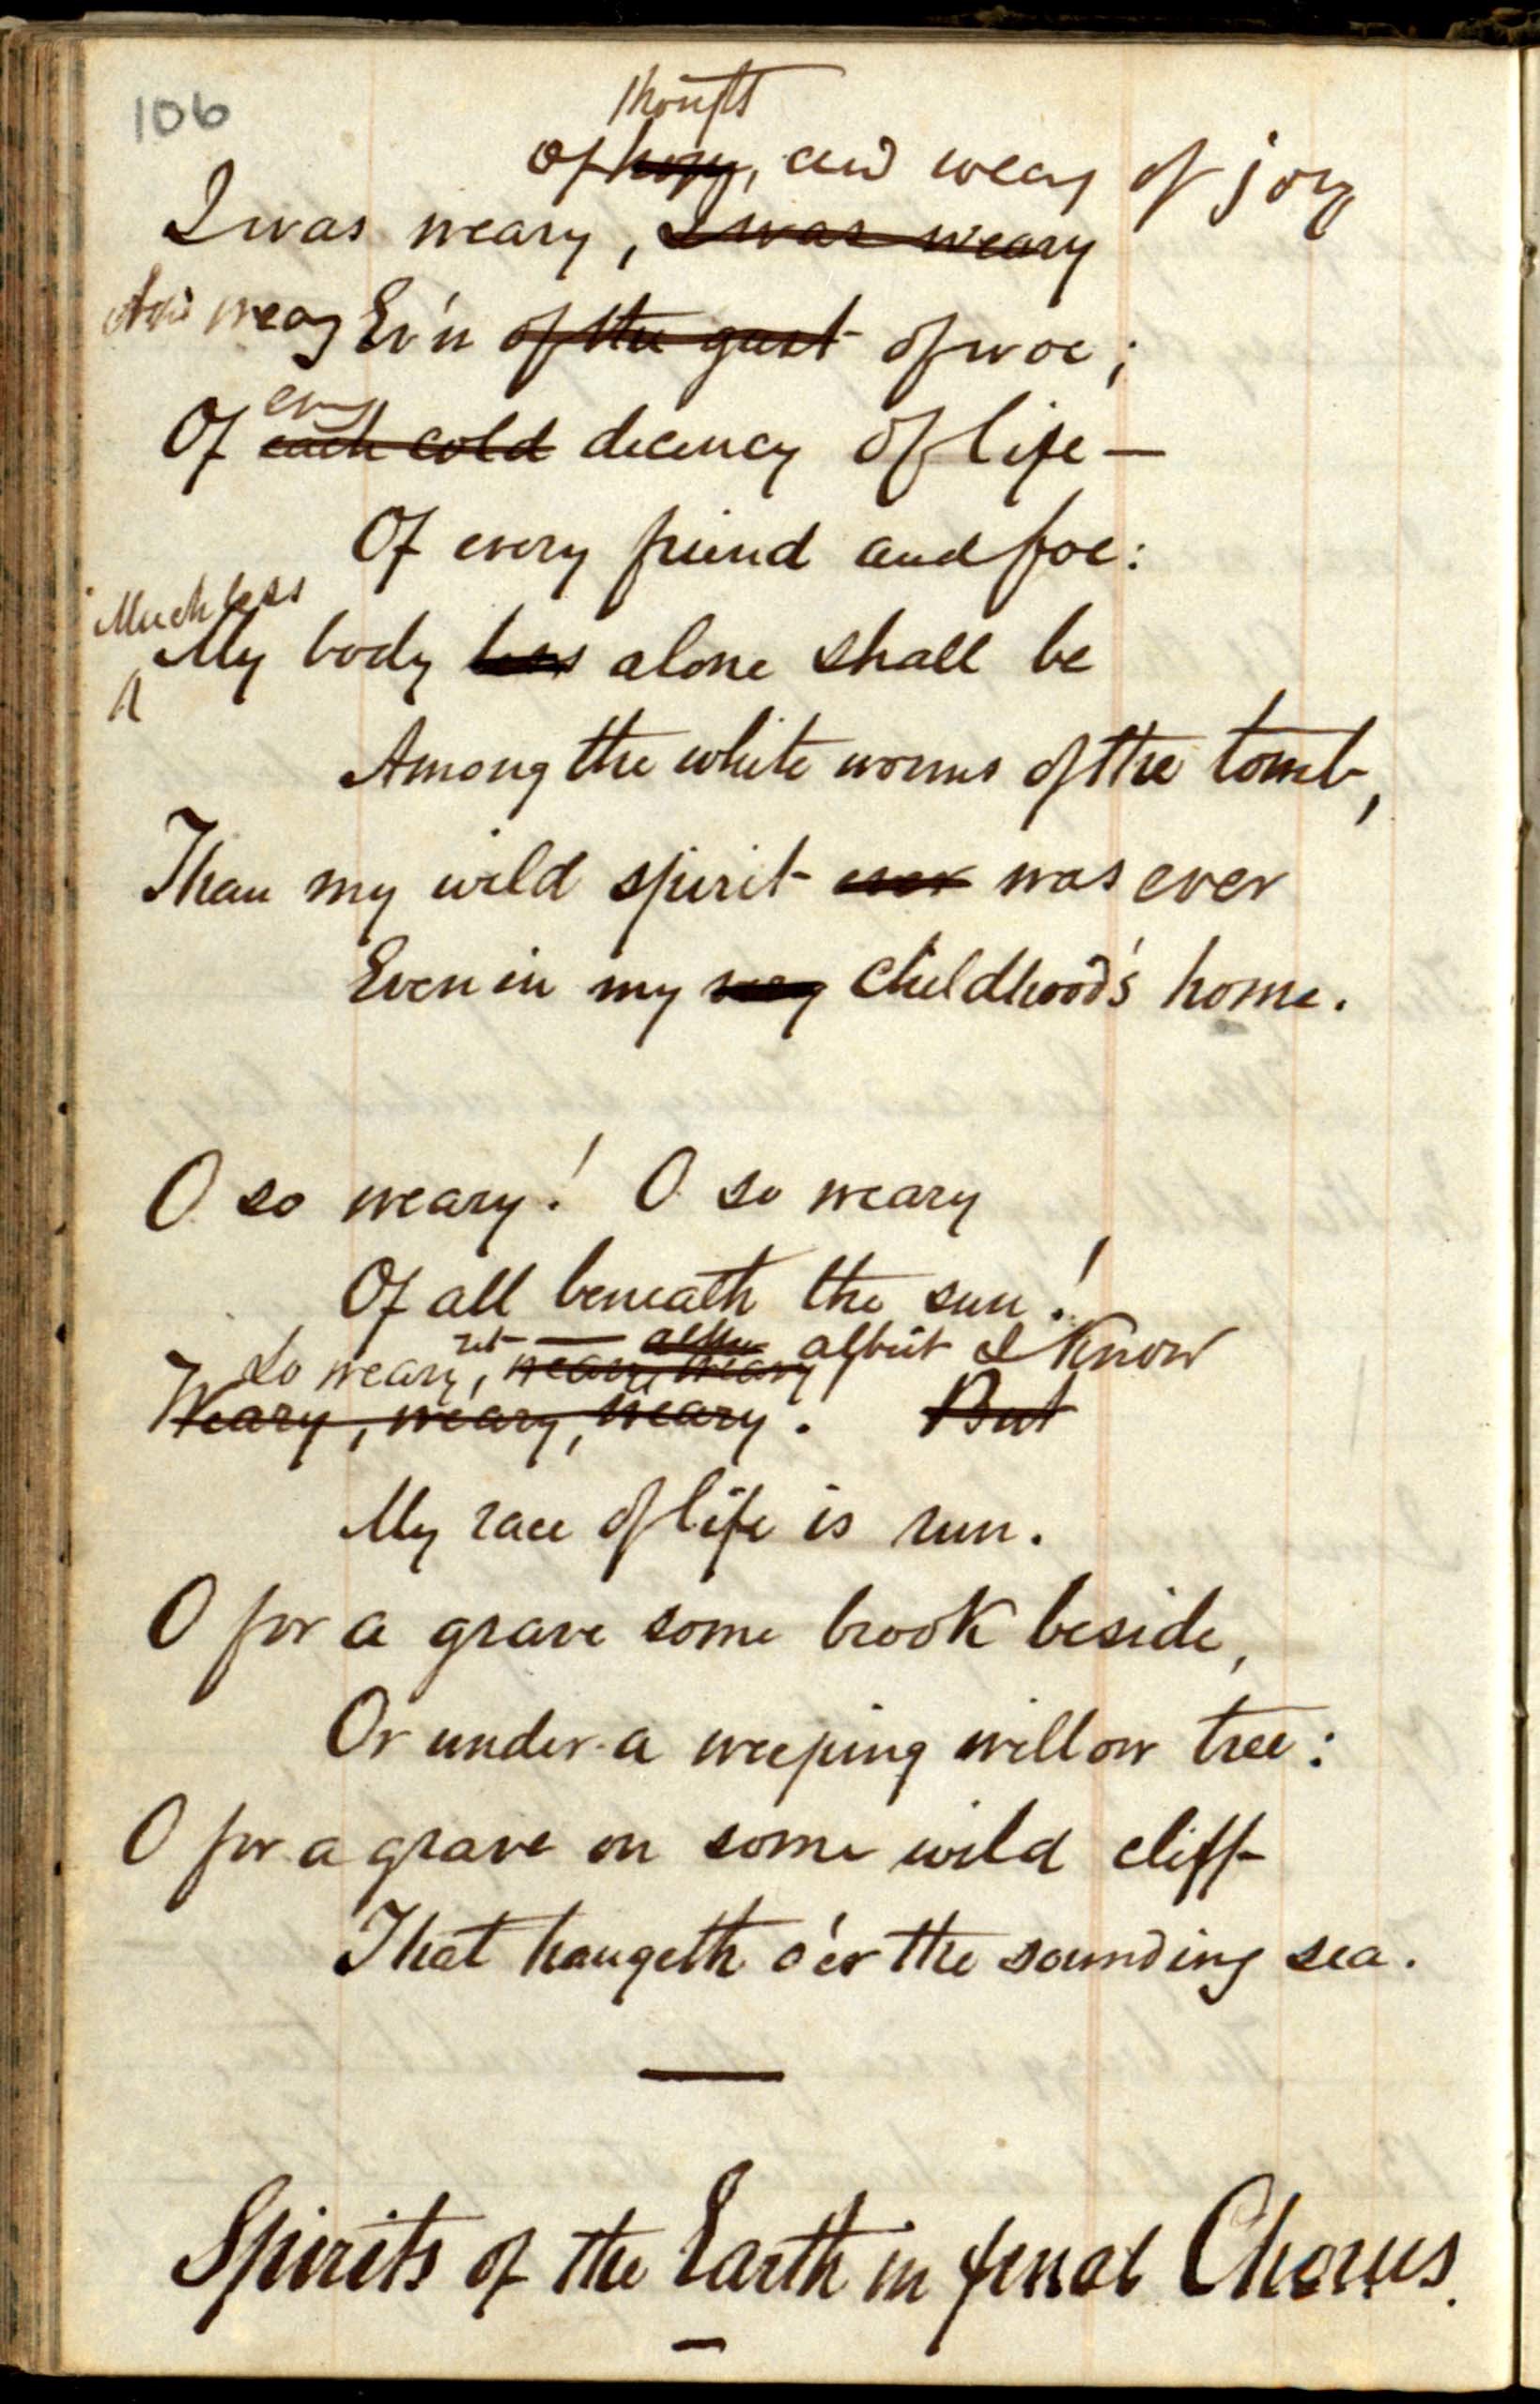 106
thought
of hope, and weary of joy
I was weary, I was weary
And weary Ev'n of the gust of woe;
every
Of each cold decency of life —
Of every friend and foe:
Much less
My body less alone shall be
Among the white worms of the tomb,
Than my wild spirit ever was ever
Even in my very childhood's home.
O so weary! O so weary
Of all beneath the sun!
albeit I know
So weary, weary, weary
Weary, weary, weary. But
My race of life is run.
O for a grave some brook beside,
Or under a weeping willow tree:
O for a grave on some wild cliff
That hangeth o'er the sounding sea.
Spirits of the Earth in final Chorus.